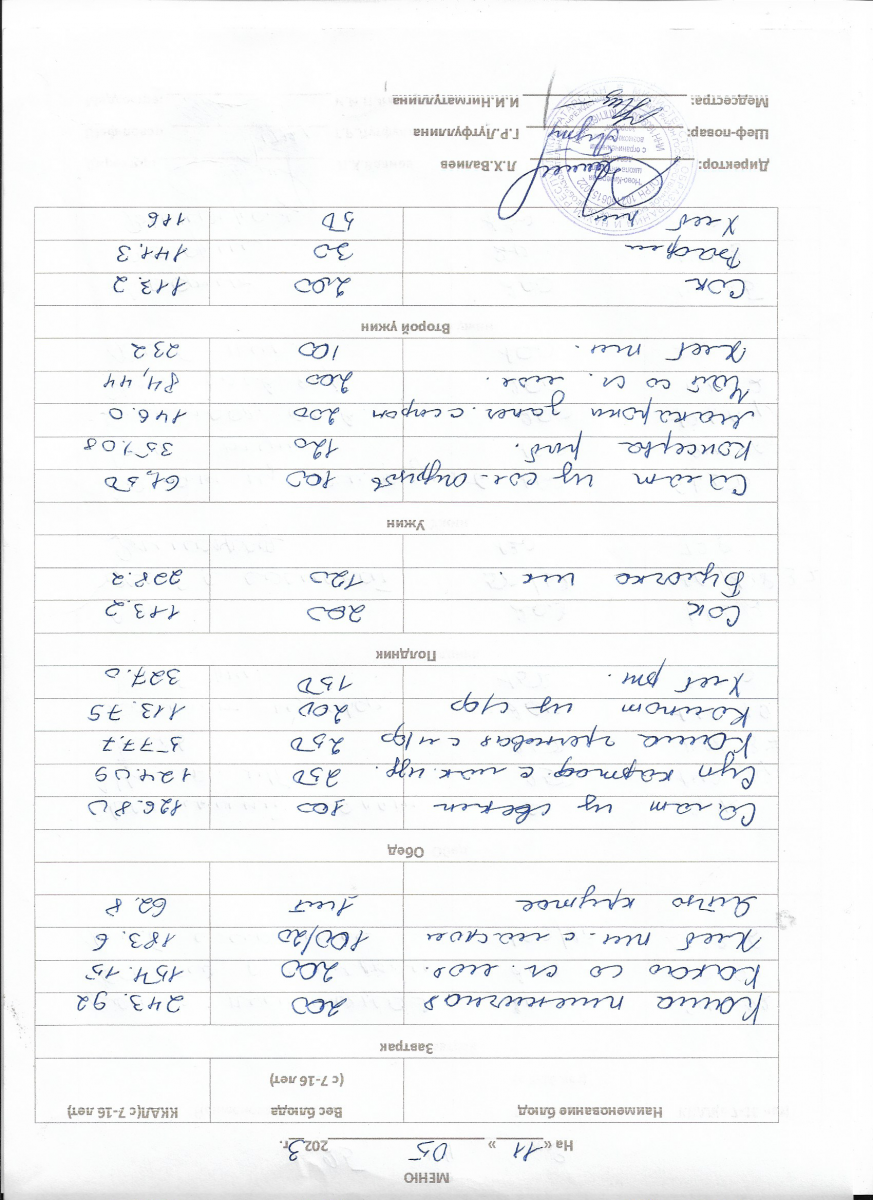 МЕНЮ
На «11» 05 2023 г.
Наименование блюд Вес блюда (с 7-16 лет) ККАЛ(с 7-16 лет)
Завтрак
Каша пшеничная 200 243.92
Какао со сг. мол. 200 154.15
Хлеб пш. с маслом 100/20 183.6
Яйцо крутое 1шт 62.8
Обед
Салат из свеклы 100 126.80
Суп картоф. с мак. изд. 250 124.09
Каша гречневая с м/р 250 377.7
Компот из с/ф 200 113.75
Хлеб рж. 150 327.0
Полдник
Сок 200 113.2
Булочка 120 228.2
Ужин
Салат из сол. огурцов 100 61,50
Консерва рыб. 120 357.08
Макароны запеч. с сыром 200 146.0
Чай со сг. мол. 200 84,44
Хлеб пш. 100 232
Второй ужин
Сок 200 113.2
Вафли 30 141.3
Хлеб пш 50 186
Директор: Л.Х.Валиев
Шеф-повар: Г.Р.Лутфуллина
Медсестра: И.И.Нигматуллина